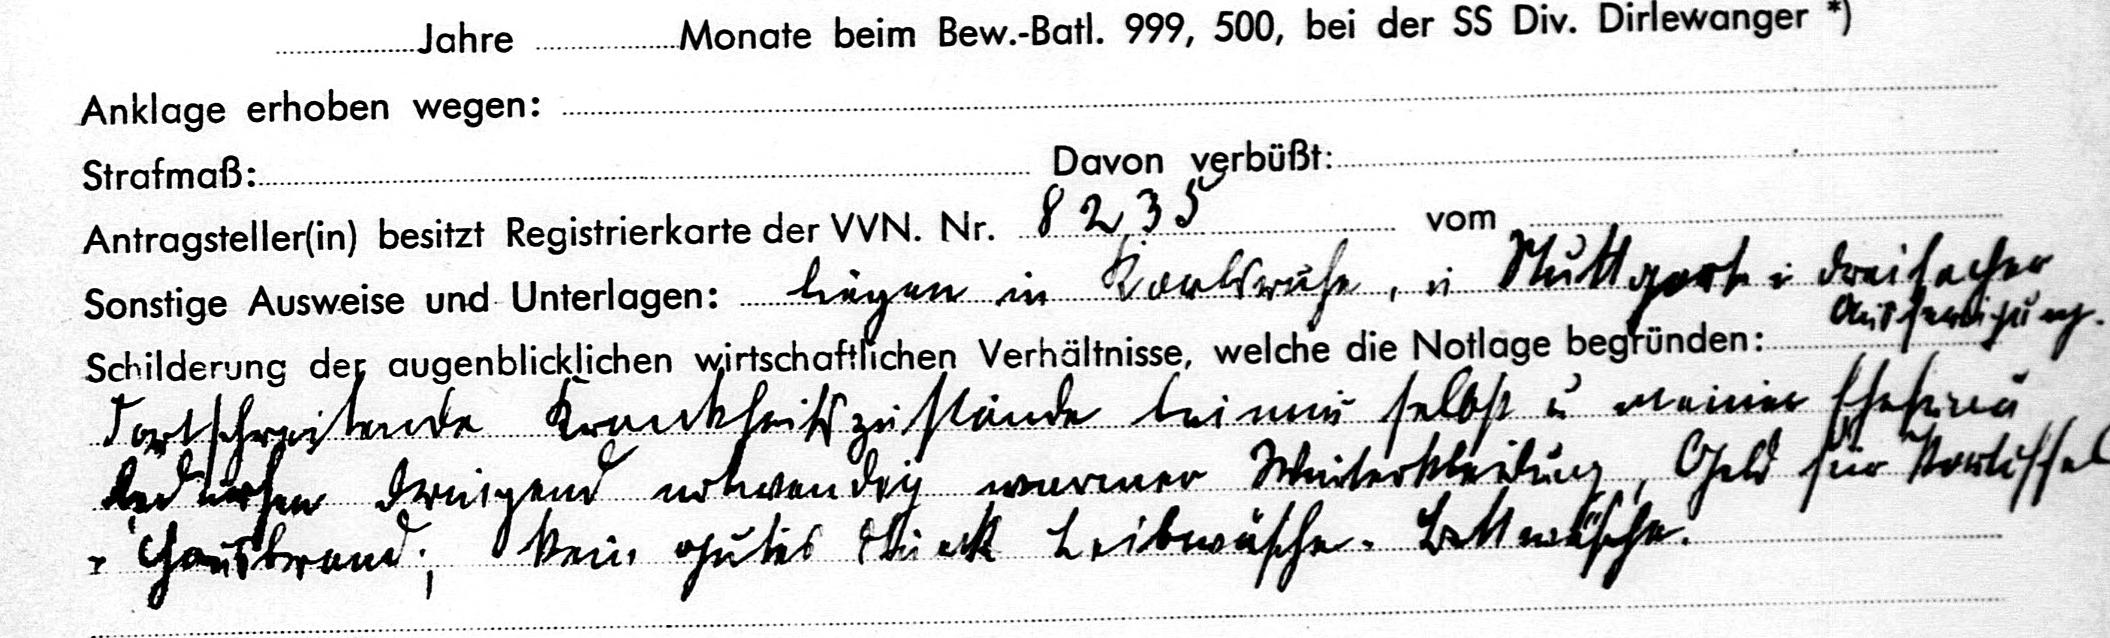 Jahre Monate beim Bew.-Batl. 999, 500, bei der SS Div. Dirlewanger *)
Anklage erhoben wegen:
Strafmaß: Davon verbüßt:
Antragsteller(in) besitzt Registrierkarte der VVN. Nr. 8235 vom
Sonstige Ausweise und Unterlagen: liegen in Karlsruhe, u Stuttgart i dreifacher
Ausfertigung.
Schilderung der augenblicklichen wirtschaftlichen Verhältnisse, welche die Notlage begründen:
Fortschreitende Krankheitszustände bei mir selbst u meiner Ehefrau
bedürfen dringend notwendig warmer Winterkleidung, Geld für Kartoffel
u Hausbrand; kein gutes Stück Leibwäsche. Bettwäsche.